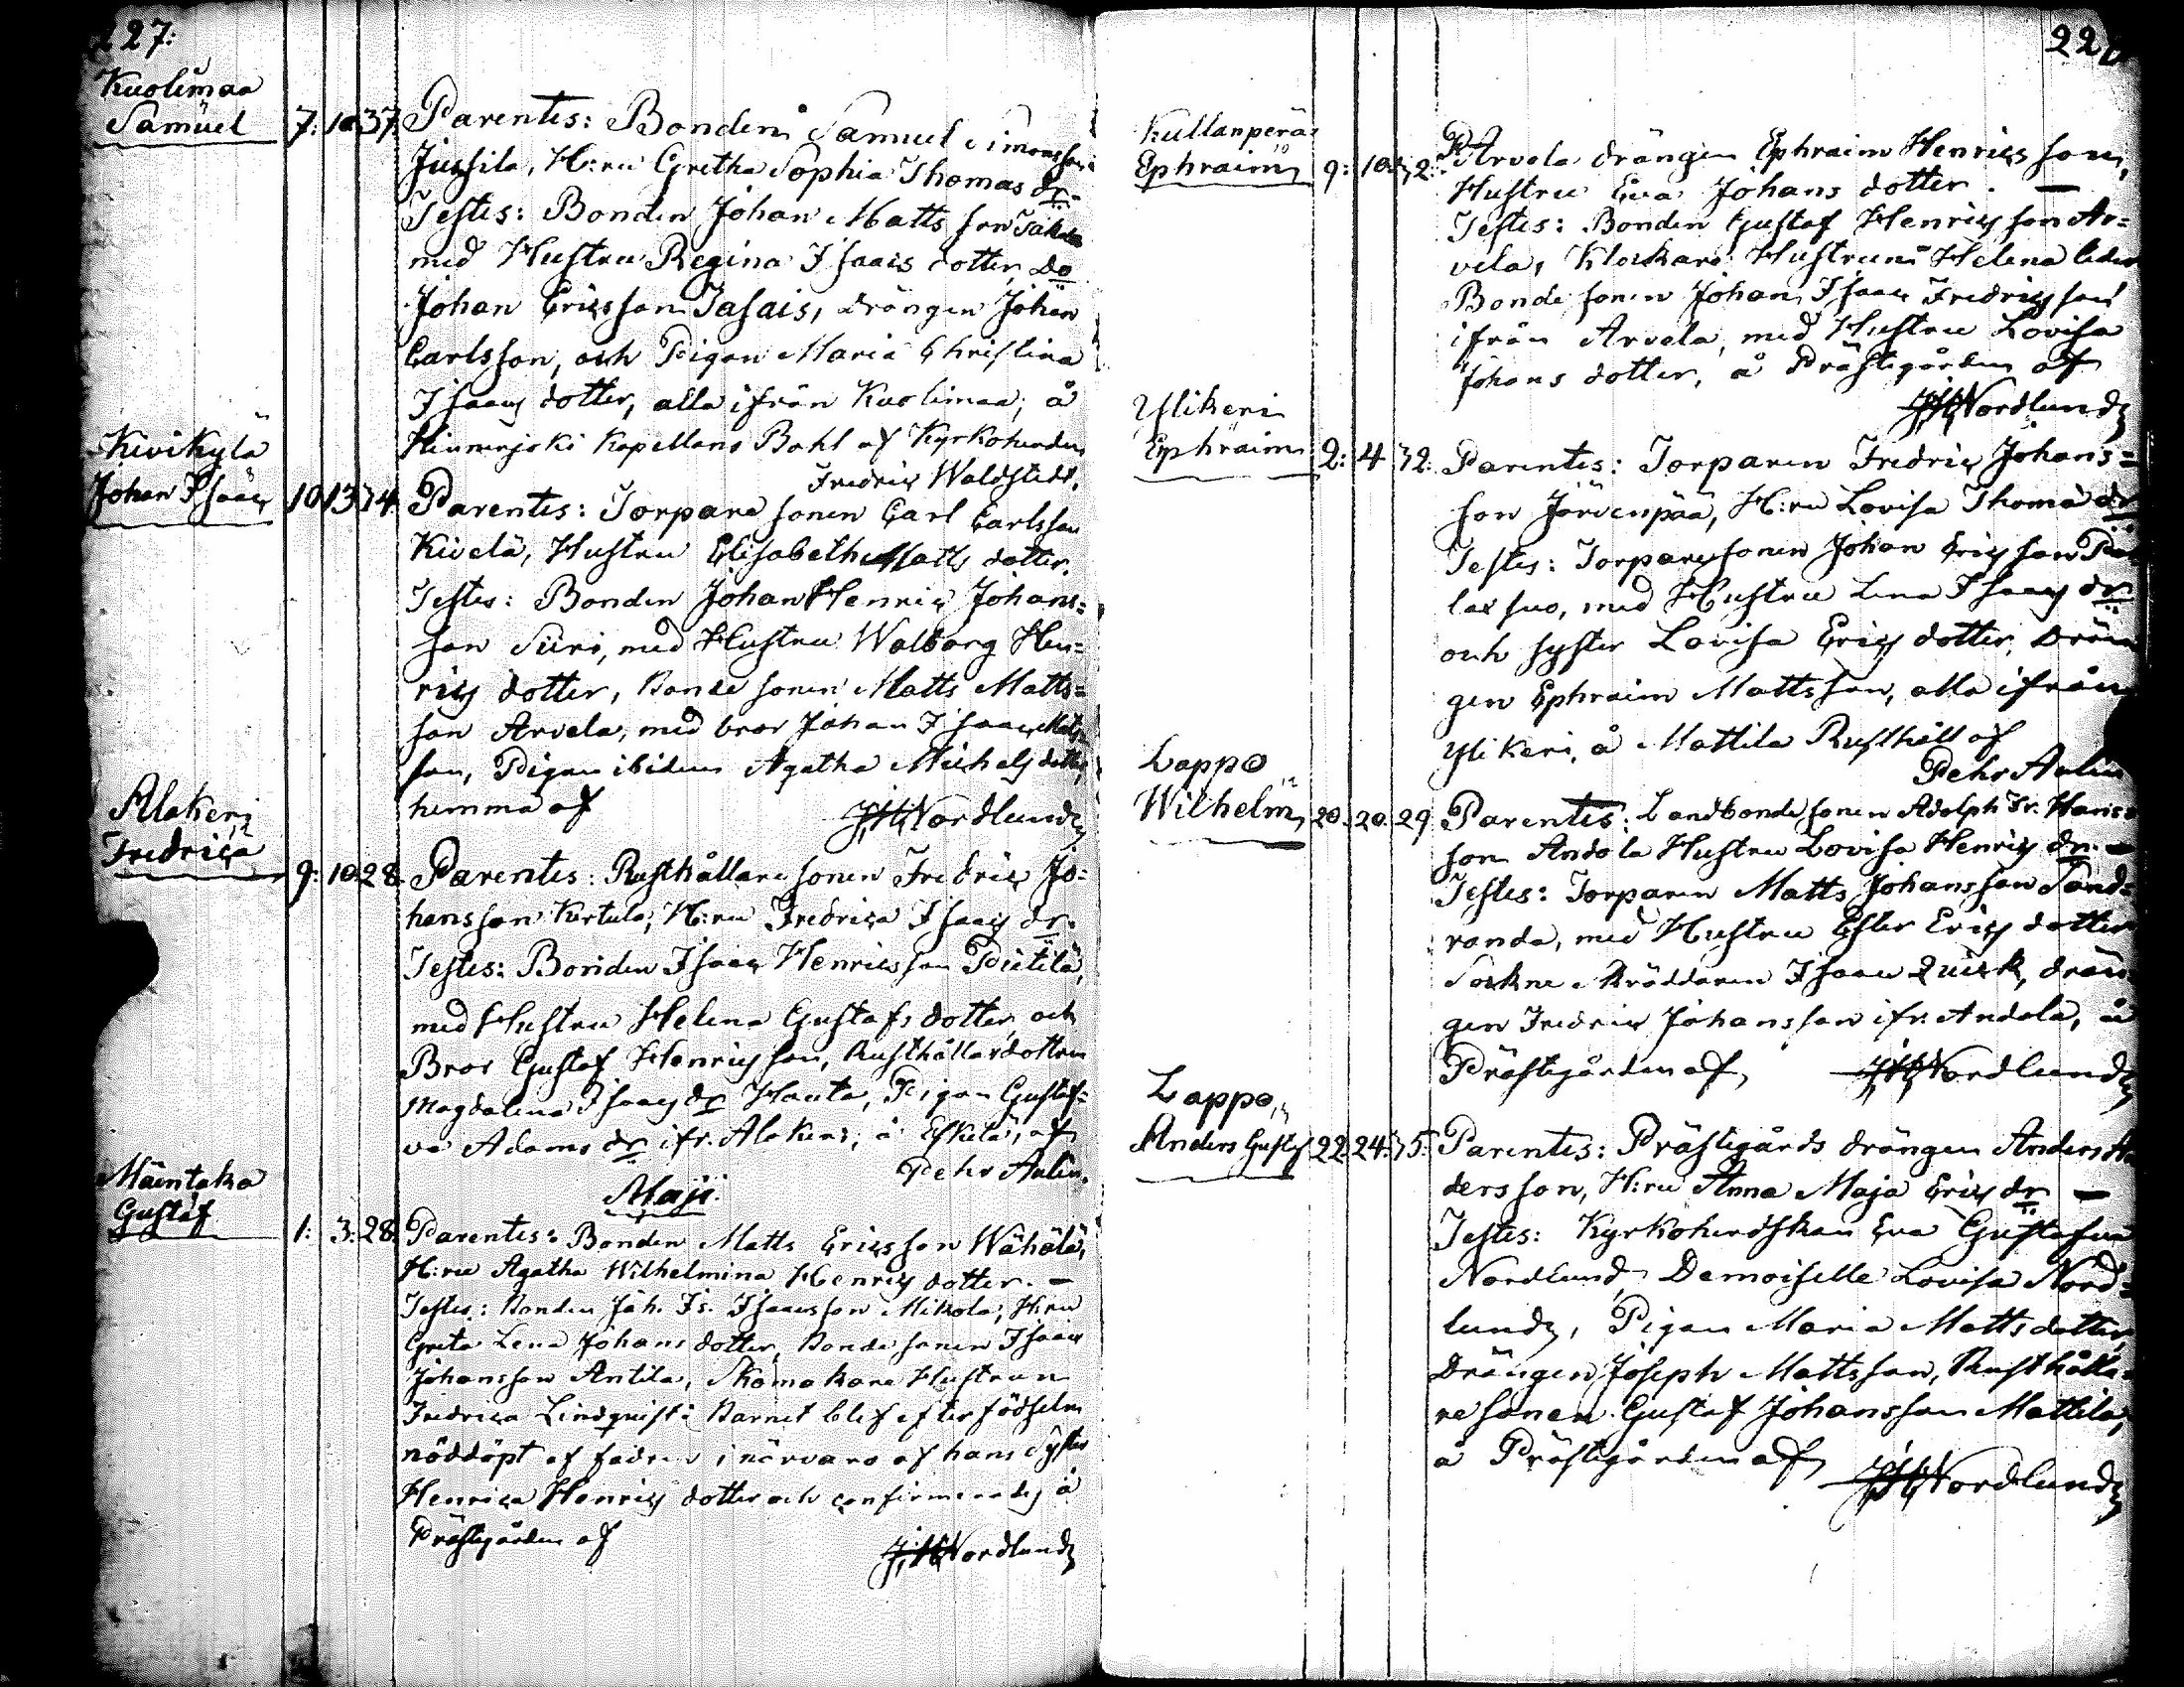 227:
Kuolimaa
Samuel 7: 10 37. Parentes: Bonden Samuel Simonsson
Jussila, H:ru Gretha Sophia Thomas dr.
Testes: Bonden Johan Matts son
med Hustru Regina Isaacs dotter, Do
Johan Ericsson Jasais, drängen Johan
Carlsson, och Pigan Maria Christina
Isaacs dotter, alla ifrån Kuolimaa, å
Hinnerjoki Kapellans Bohl af Kyrkoherden
Fredric Waldstedt.
Kivikylä
Johan Isaac 10 13 34. Parentes: Torpare sonen Carl Carlsson
Kivelä, Hustru Elisabeth Matts dotter.
Testes: Bonden Johan Henric Johans=
son Siiri, med Hustru Walborg Hen=
rics dotter, Bonde sonen Matts Matts=
son Arvela, med bror Johan Isaac Matts
son, Pigan ibidem Agatha Michels dotter,
hemma af
J.H. Nordlund
Alakeri
Fredrica 9: 10 28. Parentes: Rusthållare sonen Fredric Jo=
hansson Kertula, H:ru Fredrica Isaacs dr.
Testes: Bonden Isaac Henricsson Pietilä,
med Hustru Helena Gustafs dotter, och
Bror Gustaf Henricsson, Rusthållardottren
Magdalena Isaacs dr Hauta, Pigan Gustaf=
va Adams dr ifr. Alakeri, å Eskelä, af
Pehr Aulin.
Maji.
Mäentaka
Gustaf 1: 3: 28. Parentes: Bonden Matts Ericsson Wähälä,
H:ru Agatha Wilhelmina Henrics dotter. —
Testes: Bonden Joh. Is. Isaacsson Mikola, H:ru
Greta Lena Johans dotter, Bonde sonen Isaac
Johansson Antila, Skomakare Hustrun
Fredrica Lindqvist: Barnet blef efter födseln
nöddöpt af fadren i närvaro af hans Syster
Henrica Henrics dotter och confirmerades å
Prästgården af
J.H. Nordlund
Kullanperä
Ephraim 9: 10. 32. P. Arvela drängen Ephraim Henricsson,
Hustru Eva Johans dotter. —
Testes: Bonden Gustaf Henricsson Ar=
vela, Klockare Hustrun Helena
Bonde sonen Johan Isaac Fredricsson
ifrån Arvela, med Hustru Lovisa
Johans dotter, å Prästgården af
J.H. Nordlund
Ylikeri
Ephraim 2: 4 32. Parentes: Torparen Fredric Johans=
son Järvenpää, H:ru Lovisa Thomæ dr
Testes: Torpare sonen Johan Ericsson
lassuo, med Hustru Lena Isaacs dr
och syster Lovisa Erics dotter, Drän
gen Ephraim Mattsson, alla ifrån
Ylikeri, å Mattila Rusthåll af
Pehr Aulin
Lappo
Wilhelm 20. 20. 29. Parentes: Landbonde sonen Adolph Fr. Hans=
son Andola Hustru Lovisa Henrics dr. —
Testes: Torparen Matts Johansson Sand=
randa, med Hustru Ester Erics dotter
Sockne Skräddaren Isaac Quick, drän
gen Fredric Johansson ifr. Andola, å
Prästgården af
J.H. Nordlund
Lappo
Anders Gustaf 22. 24. 35. Parentes: Prästgårds drängen Anders An
dersson, H:ru Anna Maja Erics dr —
Testes: Kyrkoherdskan Eva Gustafva
Nordlund, Demoiselle Lovisa Nord=
lund, Pigan Maria Matts dotter,
Drängen Joseph Mattsson, Rusthålla=
re sonen Gustaf Johansson Mattila,
å Prästgården af
J.H. Nordlund